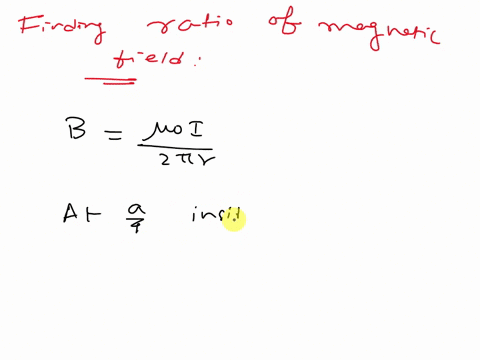 Finding ratio of magnetic
field:
B = μ0 I / 2πr
At a/4